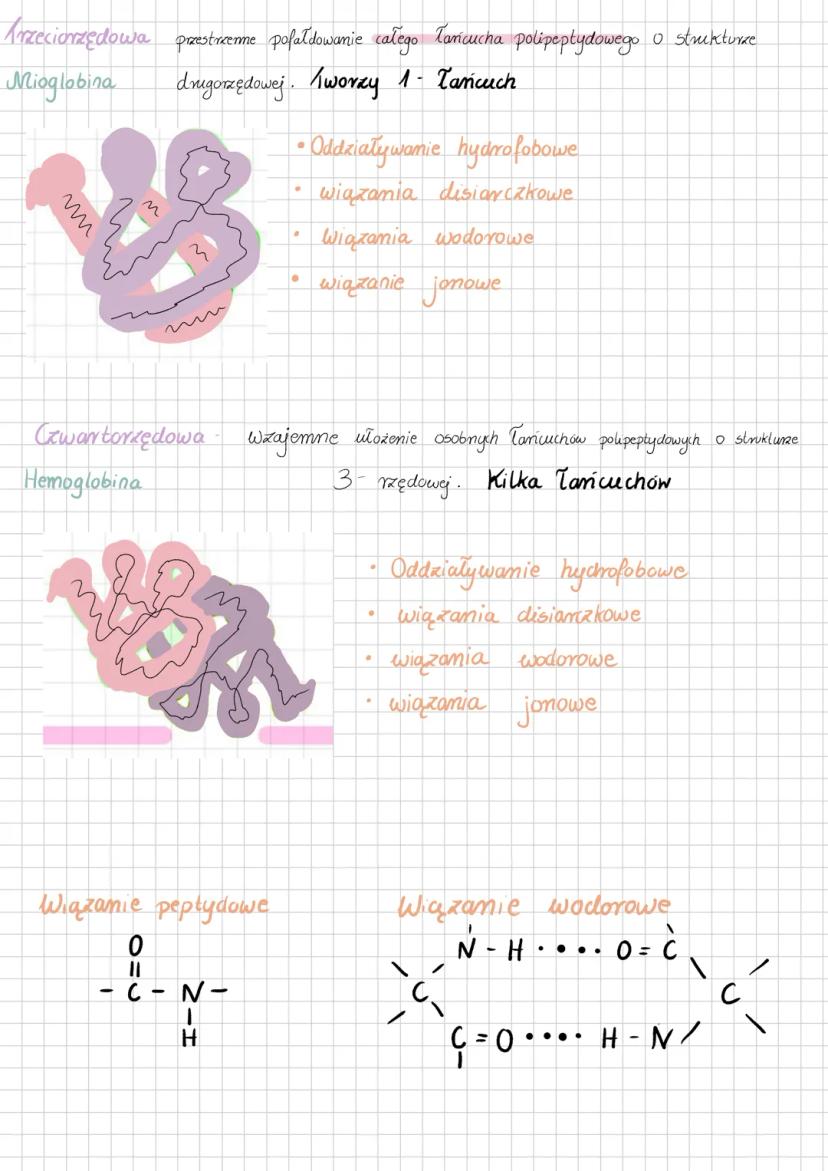 Trzeciorzędowa przestrzenne pofałdowanie całego łańcucha polipeptydowego o strukturze
Mioglobina drugorzędowej. Tworzy 1 - łańcuch
• Oddziaływanie hydrofobowe
• wiązania disiarczkowe
• wiązania wodorowe
• wiązanie jonowe
Czwartorzędowa - Wzajemne ułożenie osobnych łańcuchów polipeptydowych o strukturze
Hemoglobina 3 - rzędowej. Kilka łańcuchów
• Oddziaływanie hydrofobowe
• wiązania disiarczkowe
• wiązania wodorowe
• wiązania jonowe
Wiązanie peptydowe Wiązanie wodorowe
O
- C - N -
H
N - H · • • • O = C
C C
C = O • • • • H - N